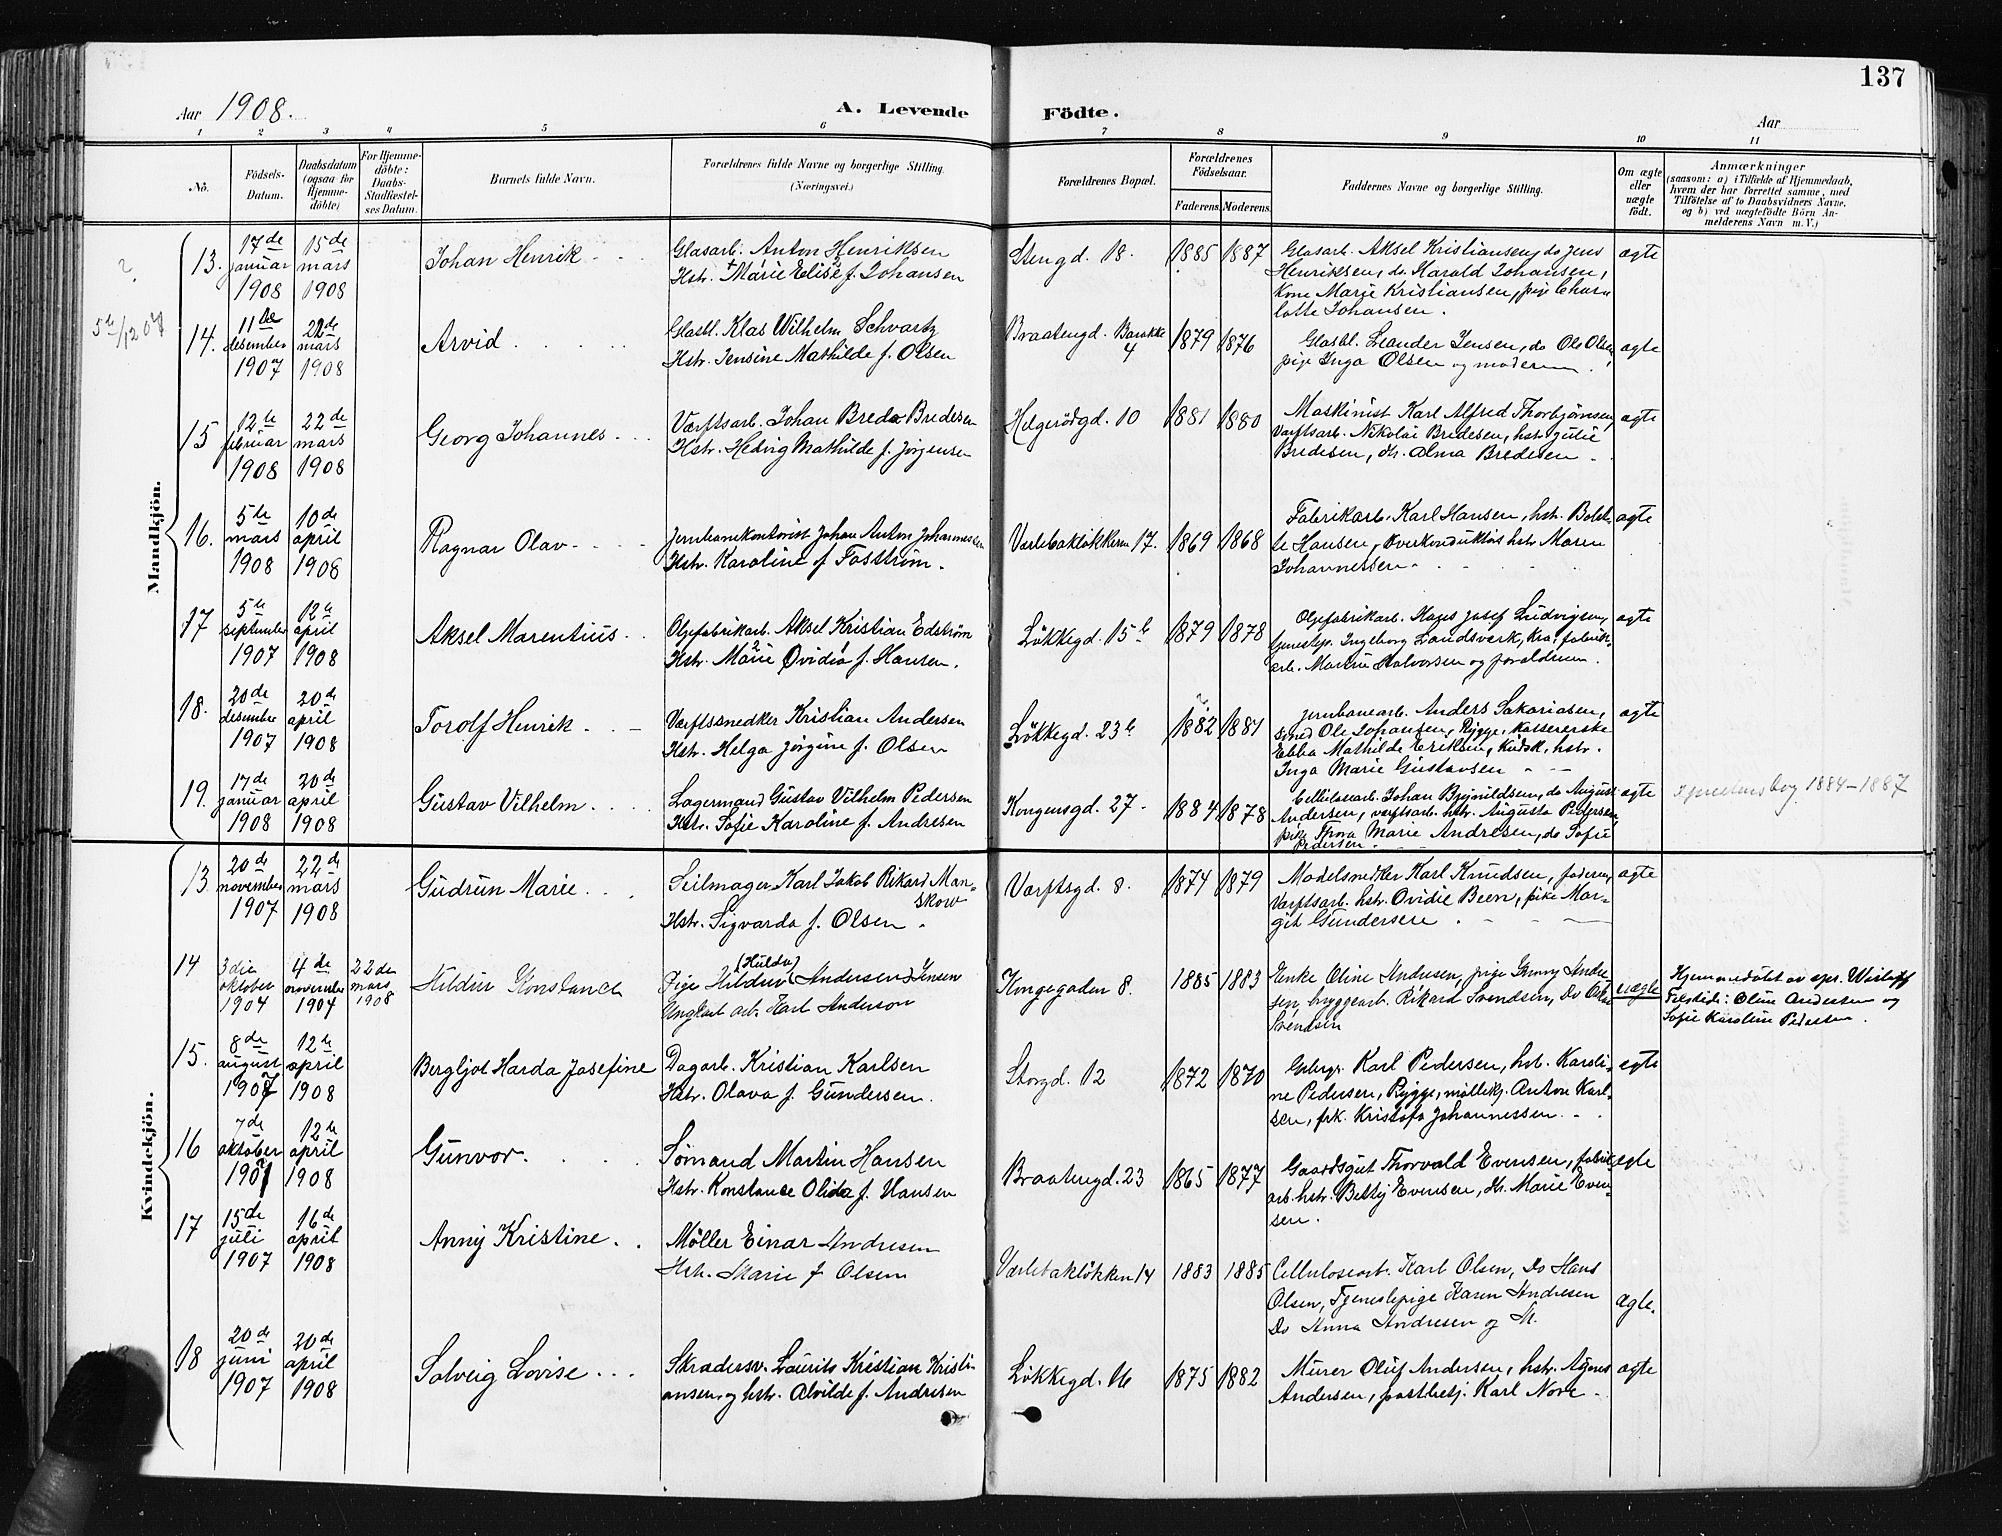 137
Aar 1908.
A. Levende Födte.
Aar
1 2 3 4 5 6 7 8 9 10 11
No.
Födsels-
Datum.
Daabsdatum
(ogsaa for
Hjemme-
döbte)
For Hjemme-
döbte:
Daabs-
Stadfæstel-
ses Datum.
Barnets fulde Navn.
Forældrenes fulde Navne og borgerlige Stilling.
(Næringsvei.)
Forældrenes Bopæl.
Forældrenes
Födselsaar.
Faderens. Moderens.
Faddernes Navne og borgerlig Stilling.
Om ægte
eller
uægte
födt.
Anmærkninger
(saasom: a) i Tilfælde af Hjemmedaab,
hvem der har forrettet samme, med
Tilföielse af to Daabsvidners Navne.
og b) ved uægtefödte Börn An-
melderens Navn m. V.)
Mandkjön.
13.
17de
januar
1908
15de
mars
1908
Johan Henrik
Glasarb. Anton Henriksen
Hstr. Marie Elise f. Johansen
Stengd. 18.
1885 1887
Glasarb. Aksel Kristiansen, do Jens
Henriksen, do. Harald Johansen,
Kone Marie Kristiansen, pige Char-
lotte Johansen.
ægte
?
5te/12 07
14.
11te
desember
1907
22de
mars
1908
Arvid
Glasbl. Klas Wilhelm Schvartz
Hstr. Jensine Mathilde f. Olsen
Braatengd. Barakke
4
1879 1876
Glasbl. Leander Jensen, do Ole Olsen,
pige Inga Olsen og moderen.
ægte
15
12te
februar
1908
22de
mars
1908
Georg Johannes
Værftsarb. Johan Brede Bredesen
Hstr. Hedvig Mathilde f. Jørgensen
Helgerødgd. 10
1881 1880
Maskinist Karl Alfred Thorbjørnsen,
Værftsarb. Nikolai Bredesen, hstr. Julie
Bredesen, fr. Alma Bredesen
ægte
16.
5te
mars
1908
10de
april
1908
Ragnar Olav
Jernbanekontorist Johan Anton Johannessen
Hstr. Karoline f. Fosström.
Varlebakløkken 17.
1869 1868
Fabrikarb. Karl Hansen, hst. Bolet-
te Hansen, Overkonduktøs hstr Maren
Johannessen
ægte
17
5te
september
1907
12te
april
1908
Aksel Marentius
Oljefabrikarb. Aksel Kristian Edström
Hstr. Marie Ovidia f. Hansen.
Løkkegd. 15b
1879 1878
Oljefabrikarb. Hans Josef Ludvigsen,
tjenestp. Ingeborg Landsverk, Kra: fabrik-
arb. Martin Halvorsen og forældrene.
ægte
18.
20de
desember
1907
20de
april
1908
Torolf Henrik
Værftssnedker Kristian Andersen
Hstr. Helga Jørgine f. Olsen
Løkkegd. 23b
1882 1881
Jernbanearb. Anders Sakariasen,
smed Ole Johansen, Rygge, Kassererske
Ebba Mathilde Eriksen, Kudsk, hstr.
Inga Marie Gustavsen
ægte
19.
17de
januar
1908
20de
april
1908
Gustav Vilhelm
Lagermand Gustav Vilhelm Pedersen
Hstr. Sofie Karoline f. Andresen
Kongensgd. 27
1884 1878
Cellulosearb. Johan Brynildsen, do August
Andersen, værftsarb. hstr. Augusta Pedersen,
pike Thora Marie Andresen, do Sofie
Pedersen.
ægte
1884-1887
Kvindekjön.
13
20de
november
1907
22de
mars
1908
Gudrun Marie
Seilmager Karl Jakob Rikard Man-
skow
Hstr. Sigvarda f. Olsen
Værftsgd. 8.
1874 1879
Modelsnedker Karl Knudsen, faderen,
Værftsarb. hstr. Ovidie Been, pike Mar-
git Gundersen
ægte
14
3die
oktober
1904
4de
november
1904
22de
mars
1908
Hildur Konstance
(Hulda)
Pige Hildur Andersen Jensen
Ungkarl arb. Karl Anderson
Kongegaden 8.
1885 1883
Enke Oline Andresen, pige Andre-
sen, bryggearb. Rikard Svendsen, Do
Svendsen
uægte
Hjemmedøbt av spr. Wisløff
Tilstede: Oline Andersen og
Sofie Karoline Pedersen.
15.
8de
august
1907
12te
april
1908
Bergljot Harda Josefine
Dagarb. Kristian Karlsen
Hstr. Olava f. Gundersen.
Storgd. 12
1872 1870
Gbrgr. Karl Pedersen, hst. Karoli-
ne Pedersen, Rygge, møllekj. Anton Karl-
sen, frk. Kristofa Johannessen
ægte
16
7de
oktober
1907
12te
april
1908
Gunvor.
Sømand Martin Hansen
Hstr. Konstance Olida f. Hansen
Braatengd. 23
1865 1877
Gaardsgut Thorvald Evensen, fabrik-
arb. hstr. Betty Evensen, fr. Marie Even-
sen.
ægte
17
15de
juli
1907
16de
april
1908
Anny Kristine
Møller Einar Andresen
Hstr. Marie f. Olsen
Varlebakløkken 14
1883 1885
Cellulosearb. Karl Olsen, Do Hans
Olsen, Tjenestepige Karen Andresen
Do Anna Andresen og M.
ægte.
18
20de
juni
1907
20de
april
1908
Solveig Lovise
Skræddersv. Laurits Kristian Kristi-
ansen og hstr. Alvilde f. Andresen
Løkkegd. 16
1875 1882
Murer Oluf Andersen, hstr. Agnes
Andersen, postbetj. Karl Nore
ægte